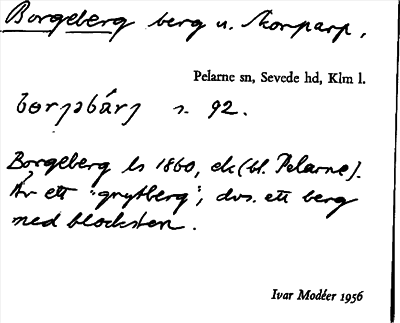 Borgeberg berg u. Skorparp.
Pelarne sn, Sevede hd, Klm l.
s. 92.
Borgeberg ls 1860, ek (bl. Pelarne).
Är ett "grytberg", dvs. ett berg
med blocksten.
Ivar Modéer 1956